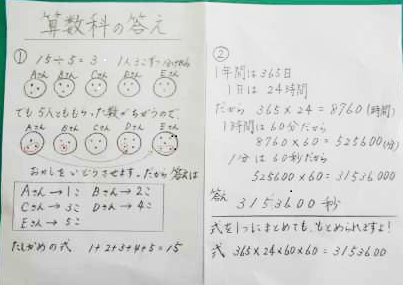 算数科の答え
①
15÷5=3 1人3こずつ分けられる
Aさん Bさん Cさん Dさん Eさん
でも5人とももらった数がちがうので、
Aさん Bさん Cさん Dさん Eさん
おかしをいどうさせます。だから答えは
Aさん→1こ Bさん→2こ
Cさん→3こ Dさん→4こ
Eさん→5こ
たしかめの式 1+2+3+4+5=15
②
1年間は365日
1日は24時間
だから 365×24=8760(時間)
1時間は60分だから
8760×60=525600(分)
1分は60秒だから
525600×60=31536000
答え 31536000秒
式を1つにまとめても、もとめられますよ!
式 365×24×60×60=31536000